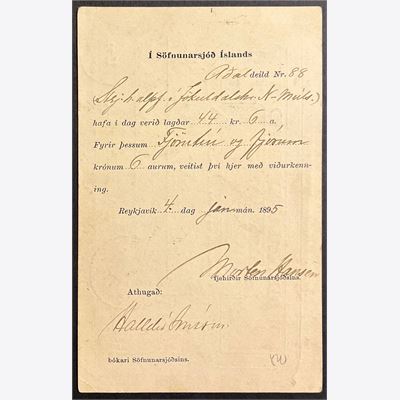 Í Söfnunarsjóð Íslands
Aðaldeild Nr. 88
í Jökuldalshr. N-Múls.)
hafa í dag verið lagðar 44 kr. 6 a.
Fyrir þessum Fjörutíu og fjórum
krónum 6 aurum, veitist því hjer með viðurkenn-
ing.
Reykjavík 4. dag jan mán. 1895
Morten Hansen
fjehirðir Söfnunarsjóðsins.
Athugað:
Halldór Jónsson
bókari Söfnunarsjóðsins.